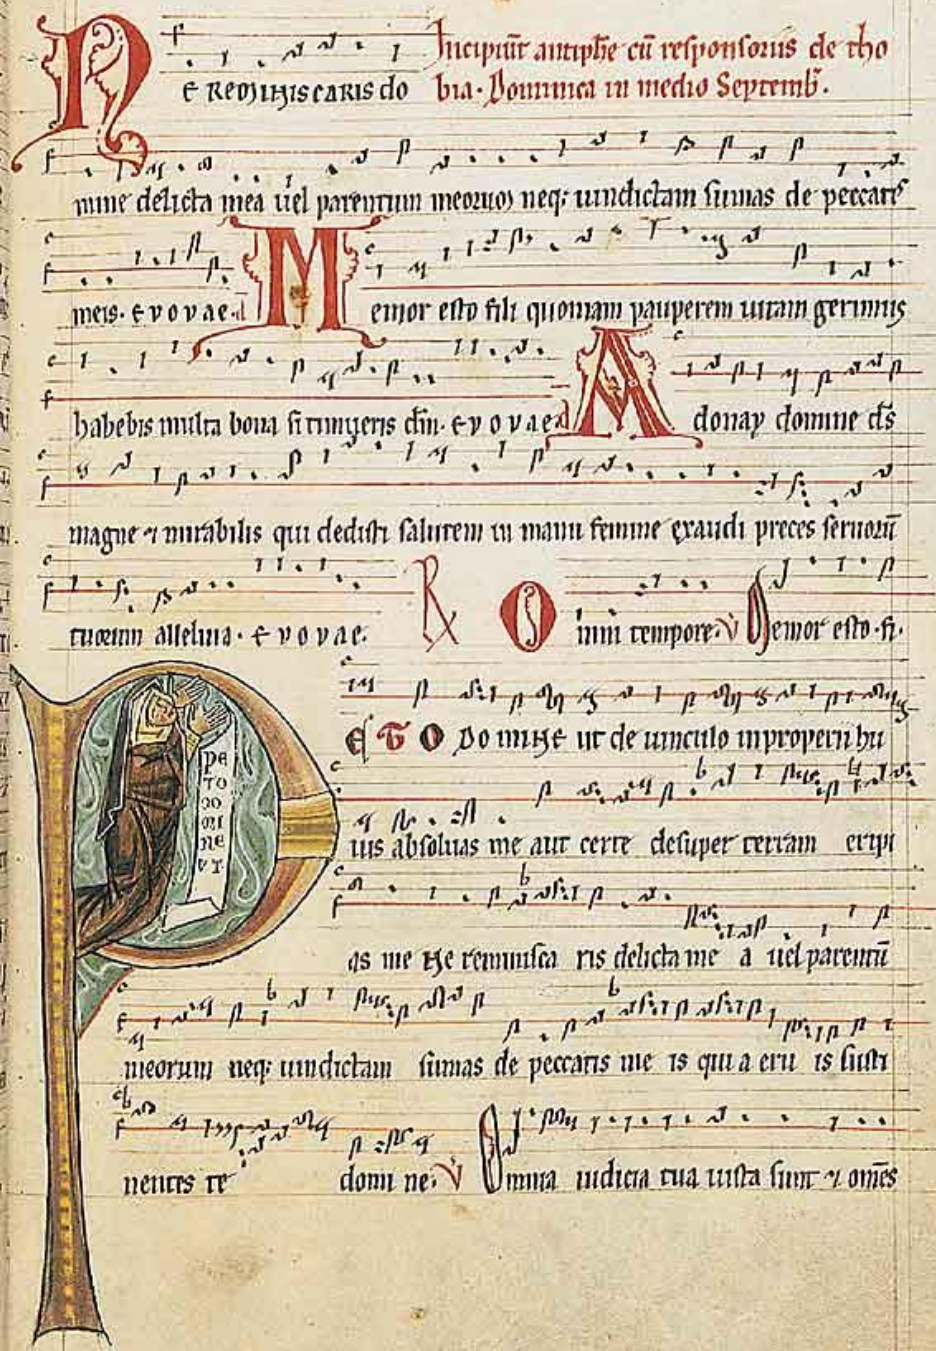 Ne reminiscaris do Incipiūt antiphe cū responsoriis de tho
bia. Dominica in medio Septemb̄.
mine delicta mea uel parentum meorum neq; uindictam sumas de peccatis
meis. e v o v a e. Memor esto fili quoniam pauperem uitam gerimus
habebis multa bona si timueris dn̄m. e v o v a e Adonay domine ds̄
magne ⁊ mirabilis qui dedisti salutem in manu femine exaudi preces seruorū
tuorum alleluia. e v o v a e. R Omni tempore. v Memor esto. fi.
PETO DOMINE ut de uinculo inproperii hu
PE
TO
DO
MI
NE
VT
ius absoluas me aut certe desuper terram eripi
as me Ne reminisca ris delicta me a uel parentū
meorum neq; uindictam sumas de peccatis me is qui a eru is susti
nentes te domi ne. v Omnia iudicia tua iusta sunt ⁊ om̄es